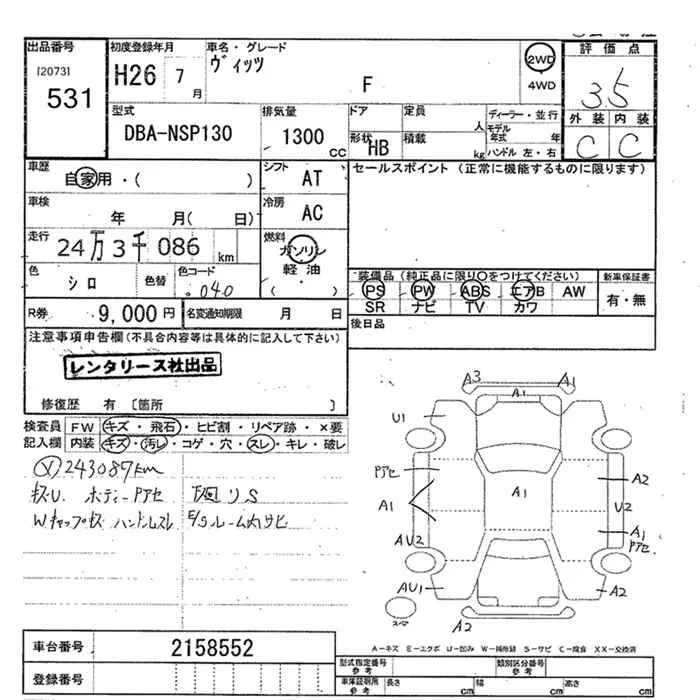 出品番号 初度登録年月 車名・グレード 評価点
(2073) H26 7月 ヴィッツ 2WD 3.5
531 F 4WD
型式 排気量 ドア 定員 ディーラー・並行 外装 内装
DBA-NSP130 1300 CC 形状 HB 積載 人 kg モデル年式 年 ハンドル 左・右 C C
車歴 自家用・( ) シフト AT セールスポイント (正常に機能するものに限ります)
車検 年 月( 日) 冷房 AC
走行 24万3千086 km 燃料 ガソリン・軽油 ( )
色 シロ 色替 色コード 040
装備品 (純正品に限り〇をつけてください) 新車保証書
PS PW ABS エアB AW 有・無
SR ナビ TV カワ
R券 9,000円 名変通知期限 月 日 後日品
注意事項申告欄(不具合内容等は具体的に記入して下さい)
レンタリース社出品
修復歴 有 〔箇所 〕
検査員 FW キズ・飛石・ヒビ割・リペア跡・×要
記入欄 内装 キズ・汚レ・コゲ・穴・スレ・キレ・破レ
243087km
キズU. ボディーPアセ 下回リS
Wキャップキズ ハンドルスレ E/gルーム内サビ
A3 A1 A1
U1
Pアセ A1 A2
A1 U2
AU2 A1 Pアセ
AU1 A2
A2
スマ
A-キズ E-エクボ U-凹み W-補修跡 S-サビ C-腐食 XX-交換済
車台番号 2158552
登録番号
型式指定番号 参考 類別区分番号 参考
車庫証明用 参考 長さ cm 幅 cm 高さ cm